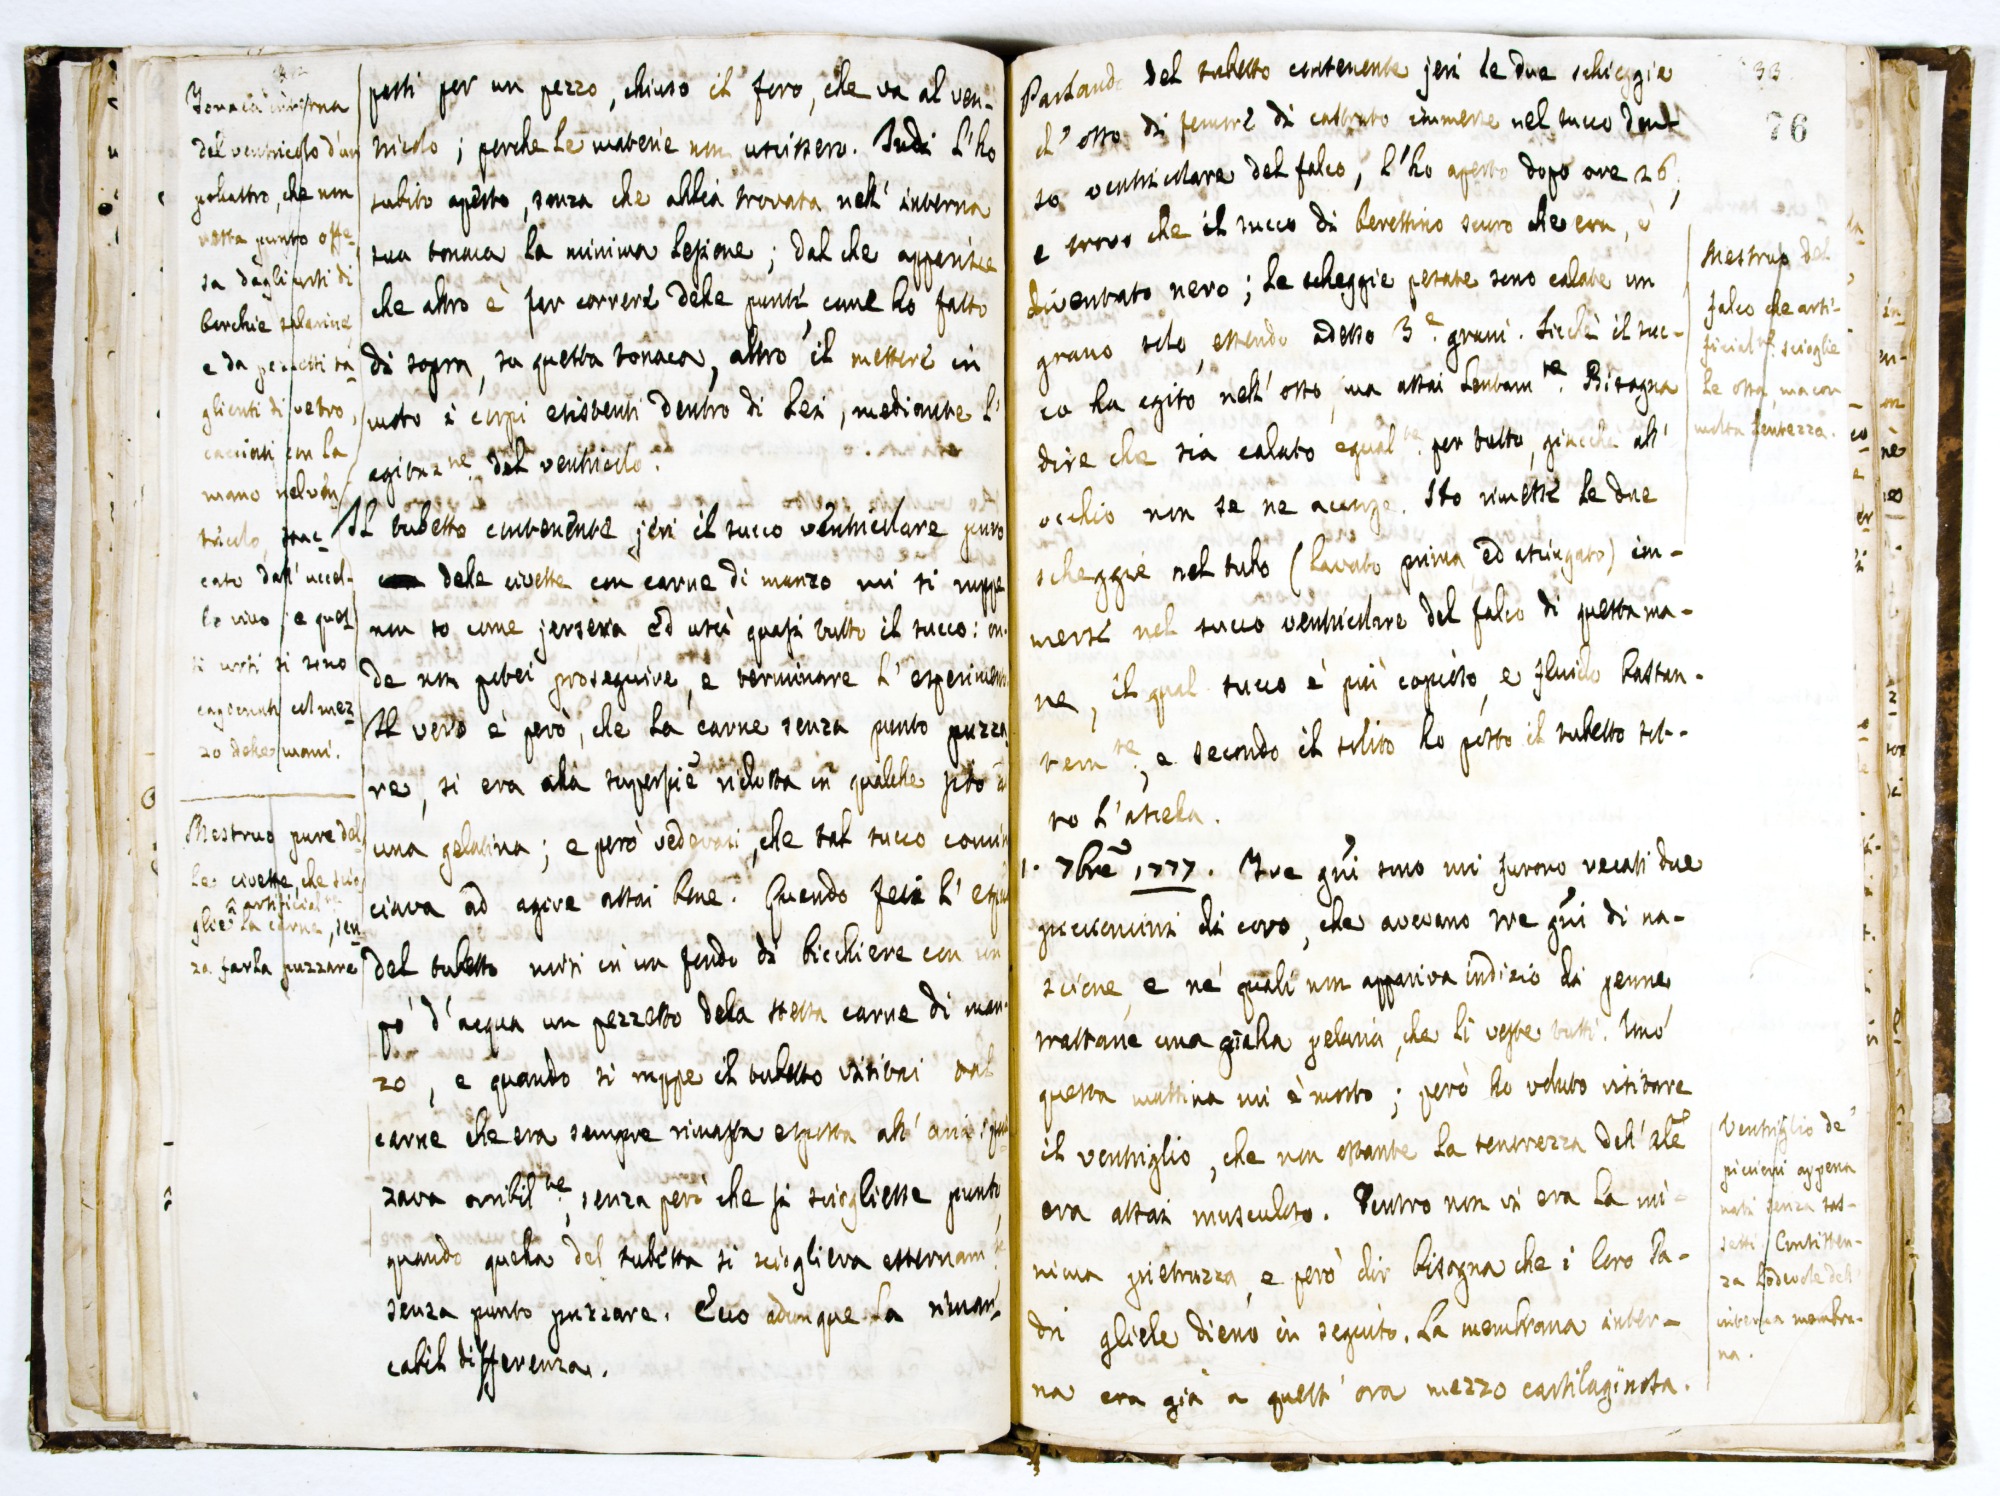 Tonaca interna
del ventricolo d'un
pollastro, che non
resta punto offe-
sa dagli urti di
berchie salarine
e da pezzetti ta-
glienti di vetro,
cacciati con la
mano nel ven-
tricolo, stac-
cato dall'uccel-
lo vivo; e quel-
li urti si sono
cagionati col mez-
zo delle mani.
Mestruo pure del-
le civette, che scio-
artificial.te
glie la carne, sen-
za farla puzzare
pesti per un pezzo, chiuso il foro, che va al ven-
tricolo; perche le materie non uscissero. Indi l'ho
subito aperto, senza che abbia trovata nell'interna
sua tonaca la minima lesione; dal che apparisce
che altro è far correre delle punte, come ho fatto
di sopra, su questa tonaca, altro il mettere in
moto i corpi esistenti dentro di lei, mediante l'
agitaz.ne del ventricolo.
Il tubetto contenente jeri il succo ventricolare puro
delle civette con carne di manzo mi si ruppe
non so come jersera, ed uscì quasi tutto il succo: on-
de non potei proseguire, e terminare l'esperimento.
Il vero è però, che la carne senza punto puzza-
re, si era alla superfie ridotta in qualche sito a
una gelatina; e però vedevasi, che tal succo comin-
ciava ad agire assai bene. Quando feci l'esp
del tubetto misi in un fondo di bicchiere con un
pò d'acqua un pezzetto della stessa carne di man-
zo, e quando si ruppe il tubetto visitai tal
carne che era sempre rimasta esposta all'aria: puz-
zava orribil.te, senza però che si sciogliesse punto,
quando quella del tubetto si scioglieva esternam.te
senza punto puzzare. Ecco adunque la rimar-
cabil differenza.
33
76
Parlando del tubetto contenente jeri le due schieggie
d'osso di femore di castrato immerse nel succo den-
so ventricolare del falco, l'ho aperto dopo ore 26,
e trovo che il succo di berettino scuro che era, è
diventato nero; le scheggie pesate sono calate un
grano solo, essendo adesso 3 grani. Sicchè il suc-
co ha agito nell'osso, ma assai lentam.te. Bisogna
dire che sia calato egual.te per tutto, giacchè all'
occhio non se ne accorge. Ho rimesse le due
scheggie nel tubo (lavato prima, ed asciugato) im-
merse nel succo ventricolare del falco di questa ma-
ne, il qual succo è più copioso, e fluido bastan-
tem.te, e secondo il solito ho posto il tubetto sot-
to l'ascella.
1. 7bre 1777. Tre gni sono mi furono recati due
piccioncini di covo, che avevano tre gni di na-
scione, e ne' quali non appariva indizio di penne
trattane una gialla peluria, che li veste tutti. Uno
questa mattina mi è morto; però ho voluto visitare
il ventriglio, che non ostante la tenerezza dell'ale
era assai musculoso. Dentro non vi era la mi-
nima pietruzza, e però dir bisogna che i loro Pa-
dri gliele dieno in seguito. La membrana inter-
na era già a quest'ora mezzo cartilaginosa.
Mestruo del
falco che arti-
ficial.te scioglie
le ossa, ma con
molta lentezza.
Ventriglio de'
piccioni appena
nati senza sas-
setti. Consisten-
za lodevole dell'
interna membra-
na.